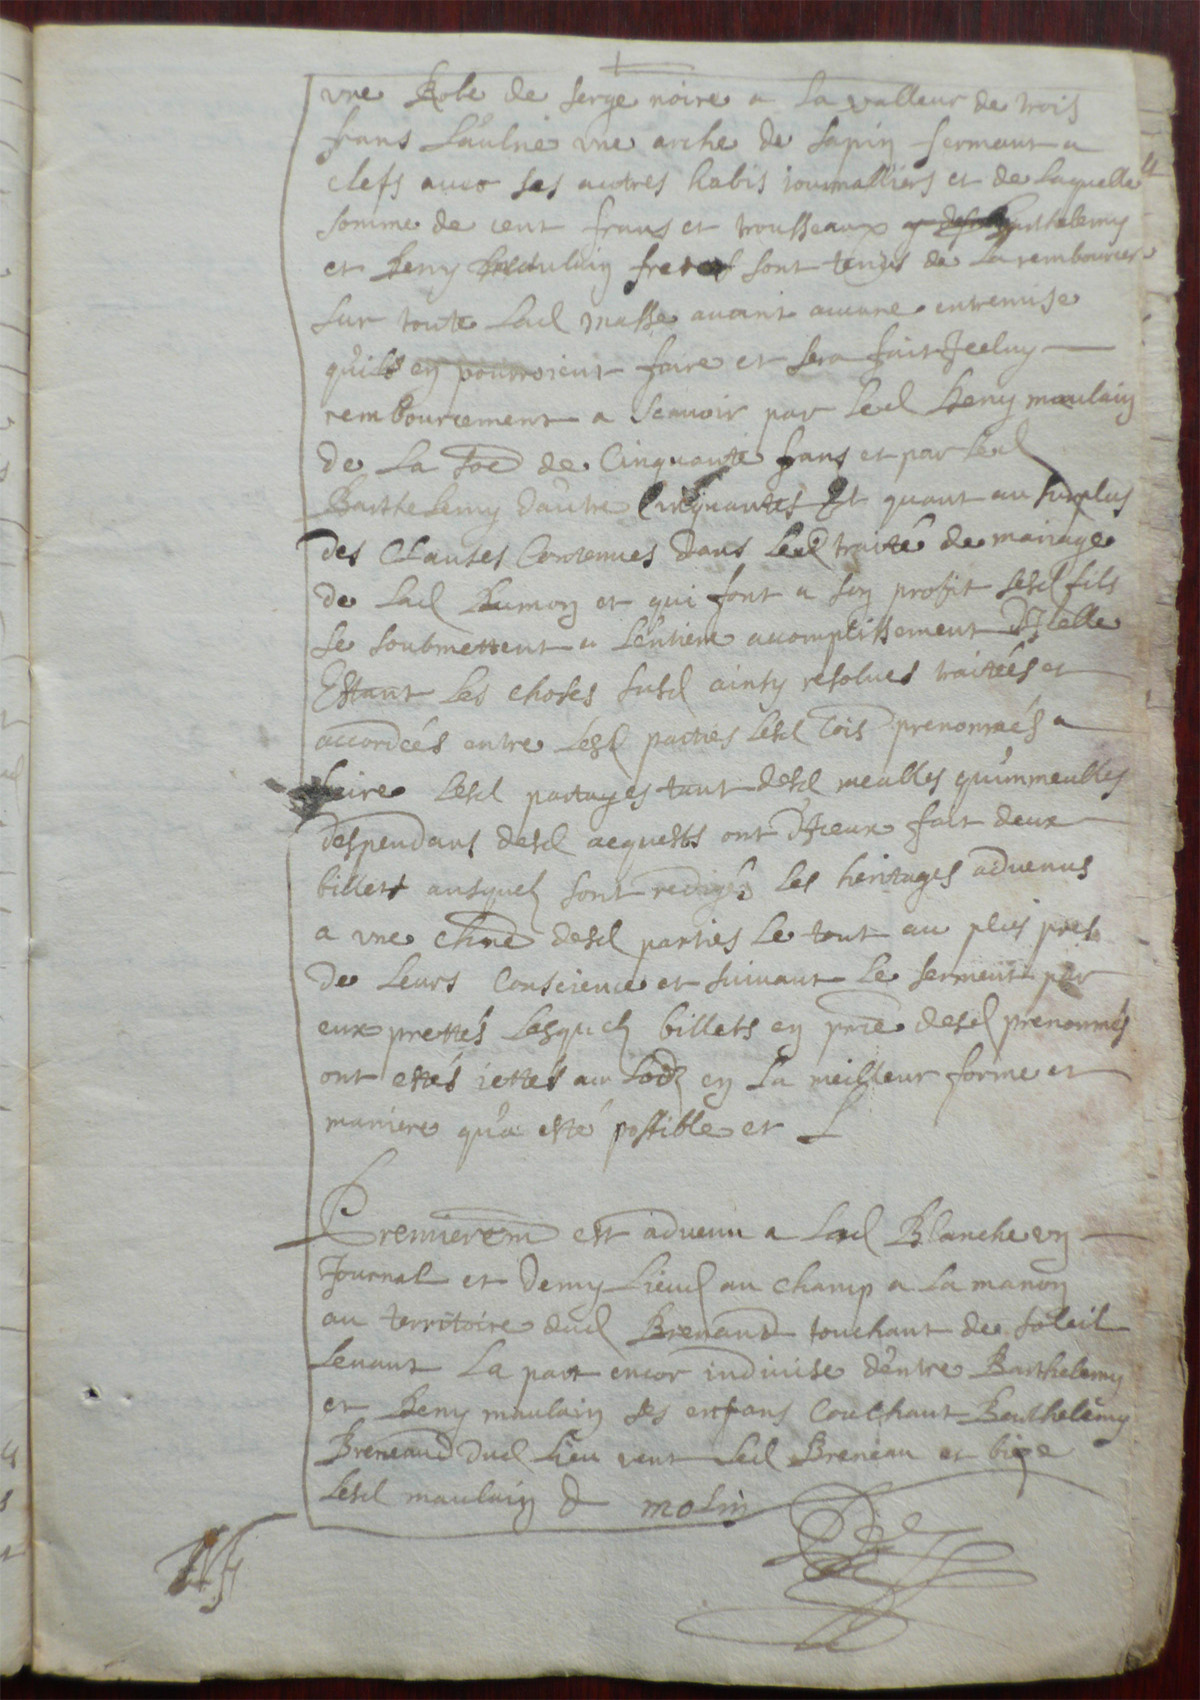 vne Robe de serge noire a la valleur de trois
frans l'aulne vne arche de sapin fermant a
clefs auec ses autres habis iournalliers et de laquelle
somme de cent frans et trousseaux Barthelemy
et heny maulain freres sont tenus de la rembourcer
sur toute lad masse auant aucune entremise
qu'ils en pourroient faire et sera fait Iceluy
rembourcement a scauoir par led heny maulain
de la soe de Cinquante frans et par led
Barthelemy d'autre Cinquantes Et quant au surplus
des Clauses Contenues dans led traité de mariage
de lad humon et qui font a son profit lesd fils
se soubmettent a l'entiere acomplissement d'Icelle
Estant les choses susd ainsy resolues traitées et
accordées entre lesd parties lesd Tois prenommés a
faire lesd partages tant desd meubles qu'immeubles
despendans desd acquests ont d'Iceux fait deux
billets ausquels sont redigés les heritages aduenus
a vne chne desd parties le tout au plus pres
de leurs Conscience et suiuant le serment par
eux prettés lesquels billets en pnce desd prenommés
ont estés iettés au Lod en la meilleur forme et
maniere qu'a esté possible et
Premierem est aduenu a lad Blanche vn
Journal et demy Lieud au champ a la manon
au territoire dud Brenand touchant de soleil
leuant la part encor indiuise d'entre Barthelemy
et heny maulain ses enfans Couchant Barthelemy
Breneand dud lieu vent led Breneau et bize
lesd maulain &  molin